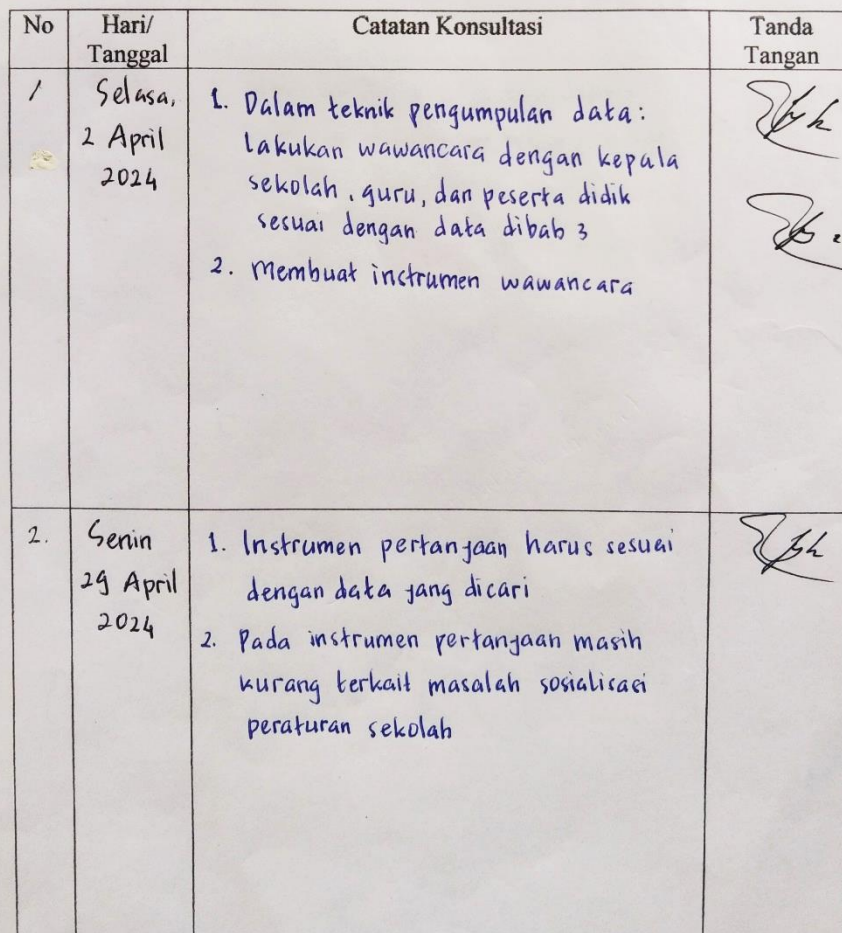 No Hari/ Tanggal Catatan Konsultasi Tanda Tangan
1 Selasa, 2 April 2024
1. Dalam teknik pengumpulan data:
Lakukan wawancara dengan kepala
sekolah, guru, dan peserta didik
sesuai dengan data dibab 3
2. Membuat instrumen wawancara
2. Senin 29 April 2024
1. Instrumen pertanyaan harus sesuai
dengan data yang dicari
2. Pada instrumen pertanyaan masih
kurang terkait masalah sosialisasi
peraturan sekolah